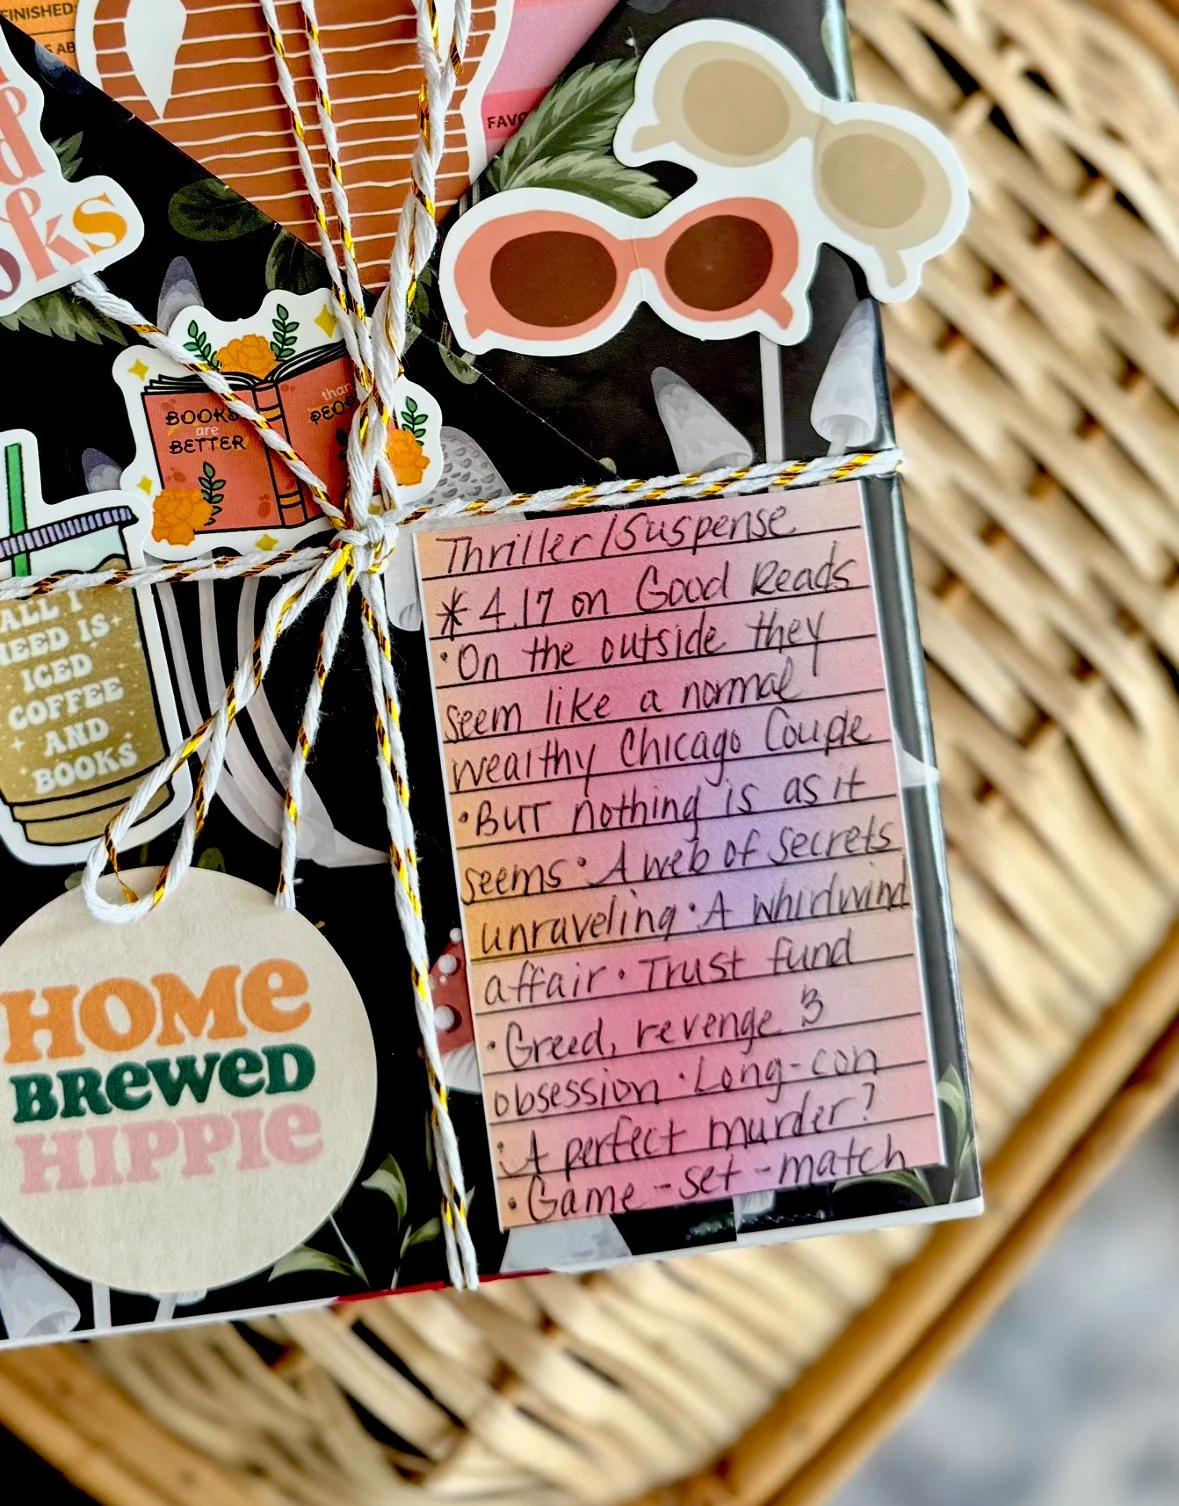 FINISHED:
FAVO
ks
BOOKS
are
BETTER
than
PEOP
ALL I
NEED IS
ICED
COFFEE
AND
BOOKS
HOME
BREWED
HIPPIE
Thriller/Suspense
* 4.17 on Good Reads
• On the outside they
seem like a normal
wealthy Chicago Couple
• BUT nothing is as it
seems • A web of secrets
unraveling • A whirlwind
affair • Trust fund
• Greed, revenge &
obsession • Long-con
• A perfect murder?
• Game-set-match